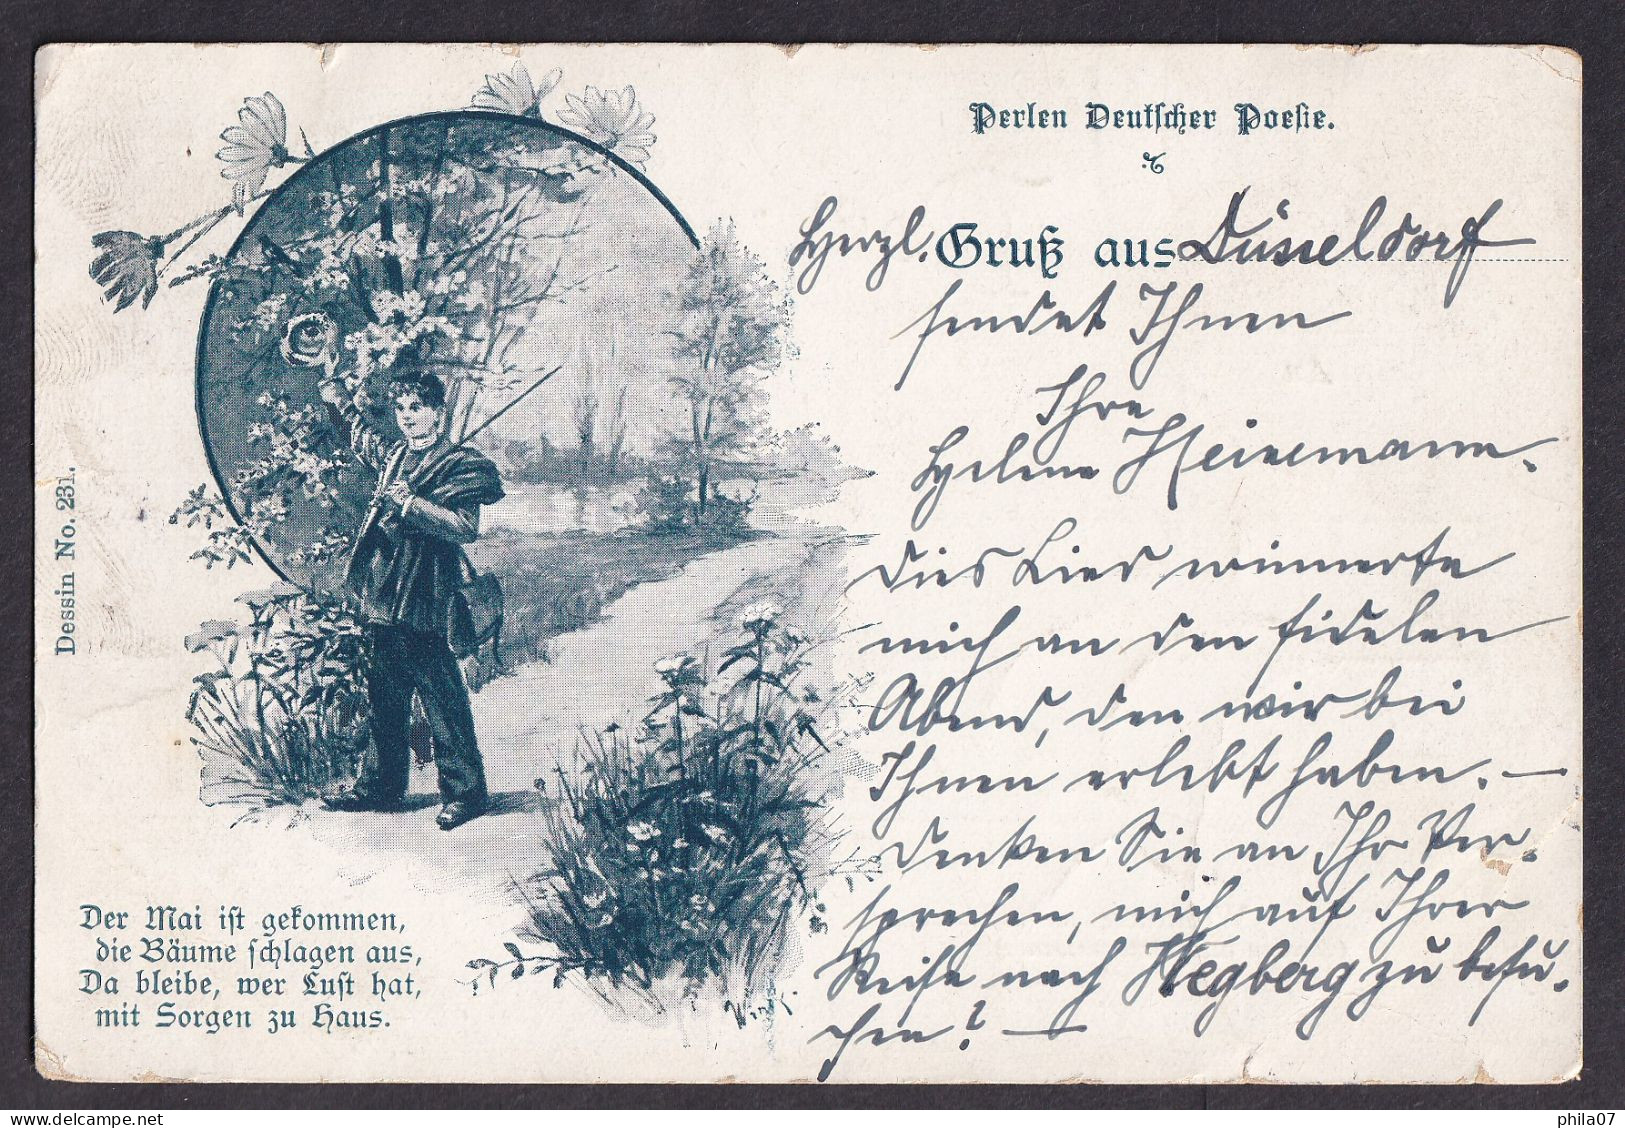 Perlen Deutscher Poesie.
Herzl. Gruß aus Düsseldorf
sendet Ihnen
Ihre
Helene Heinemann.
Dies Lied erinnerte
mich an den fidelen
Abend, den wir bei
Ihnen erlebt haben. —
Denken Sie an Ihr Ver-
sprechen, mich auf Ihrer
Reise nach Hegberg zu besu-
chen? —
Dessin No. 231.
Der Mai ist gekommen,
die Bäume schlagen aus,
Da bleibe, wer Lust hat,
mit Sorgen zu Haus.
phila07